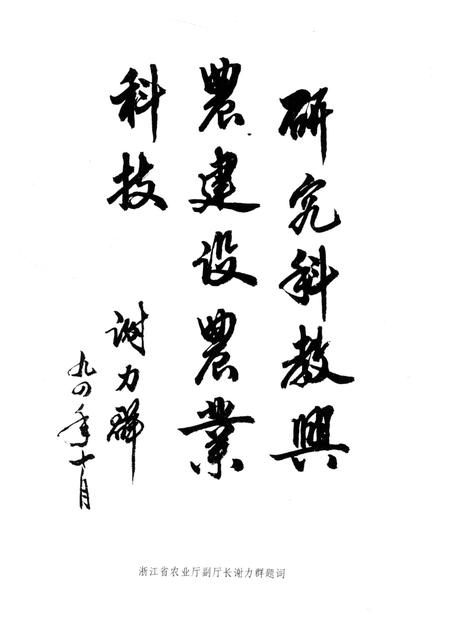 研究科教興
農建设農業
科技
谢力群
九四年十月
浙江省农业厅副厅长谢力群题词